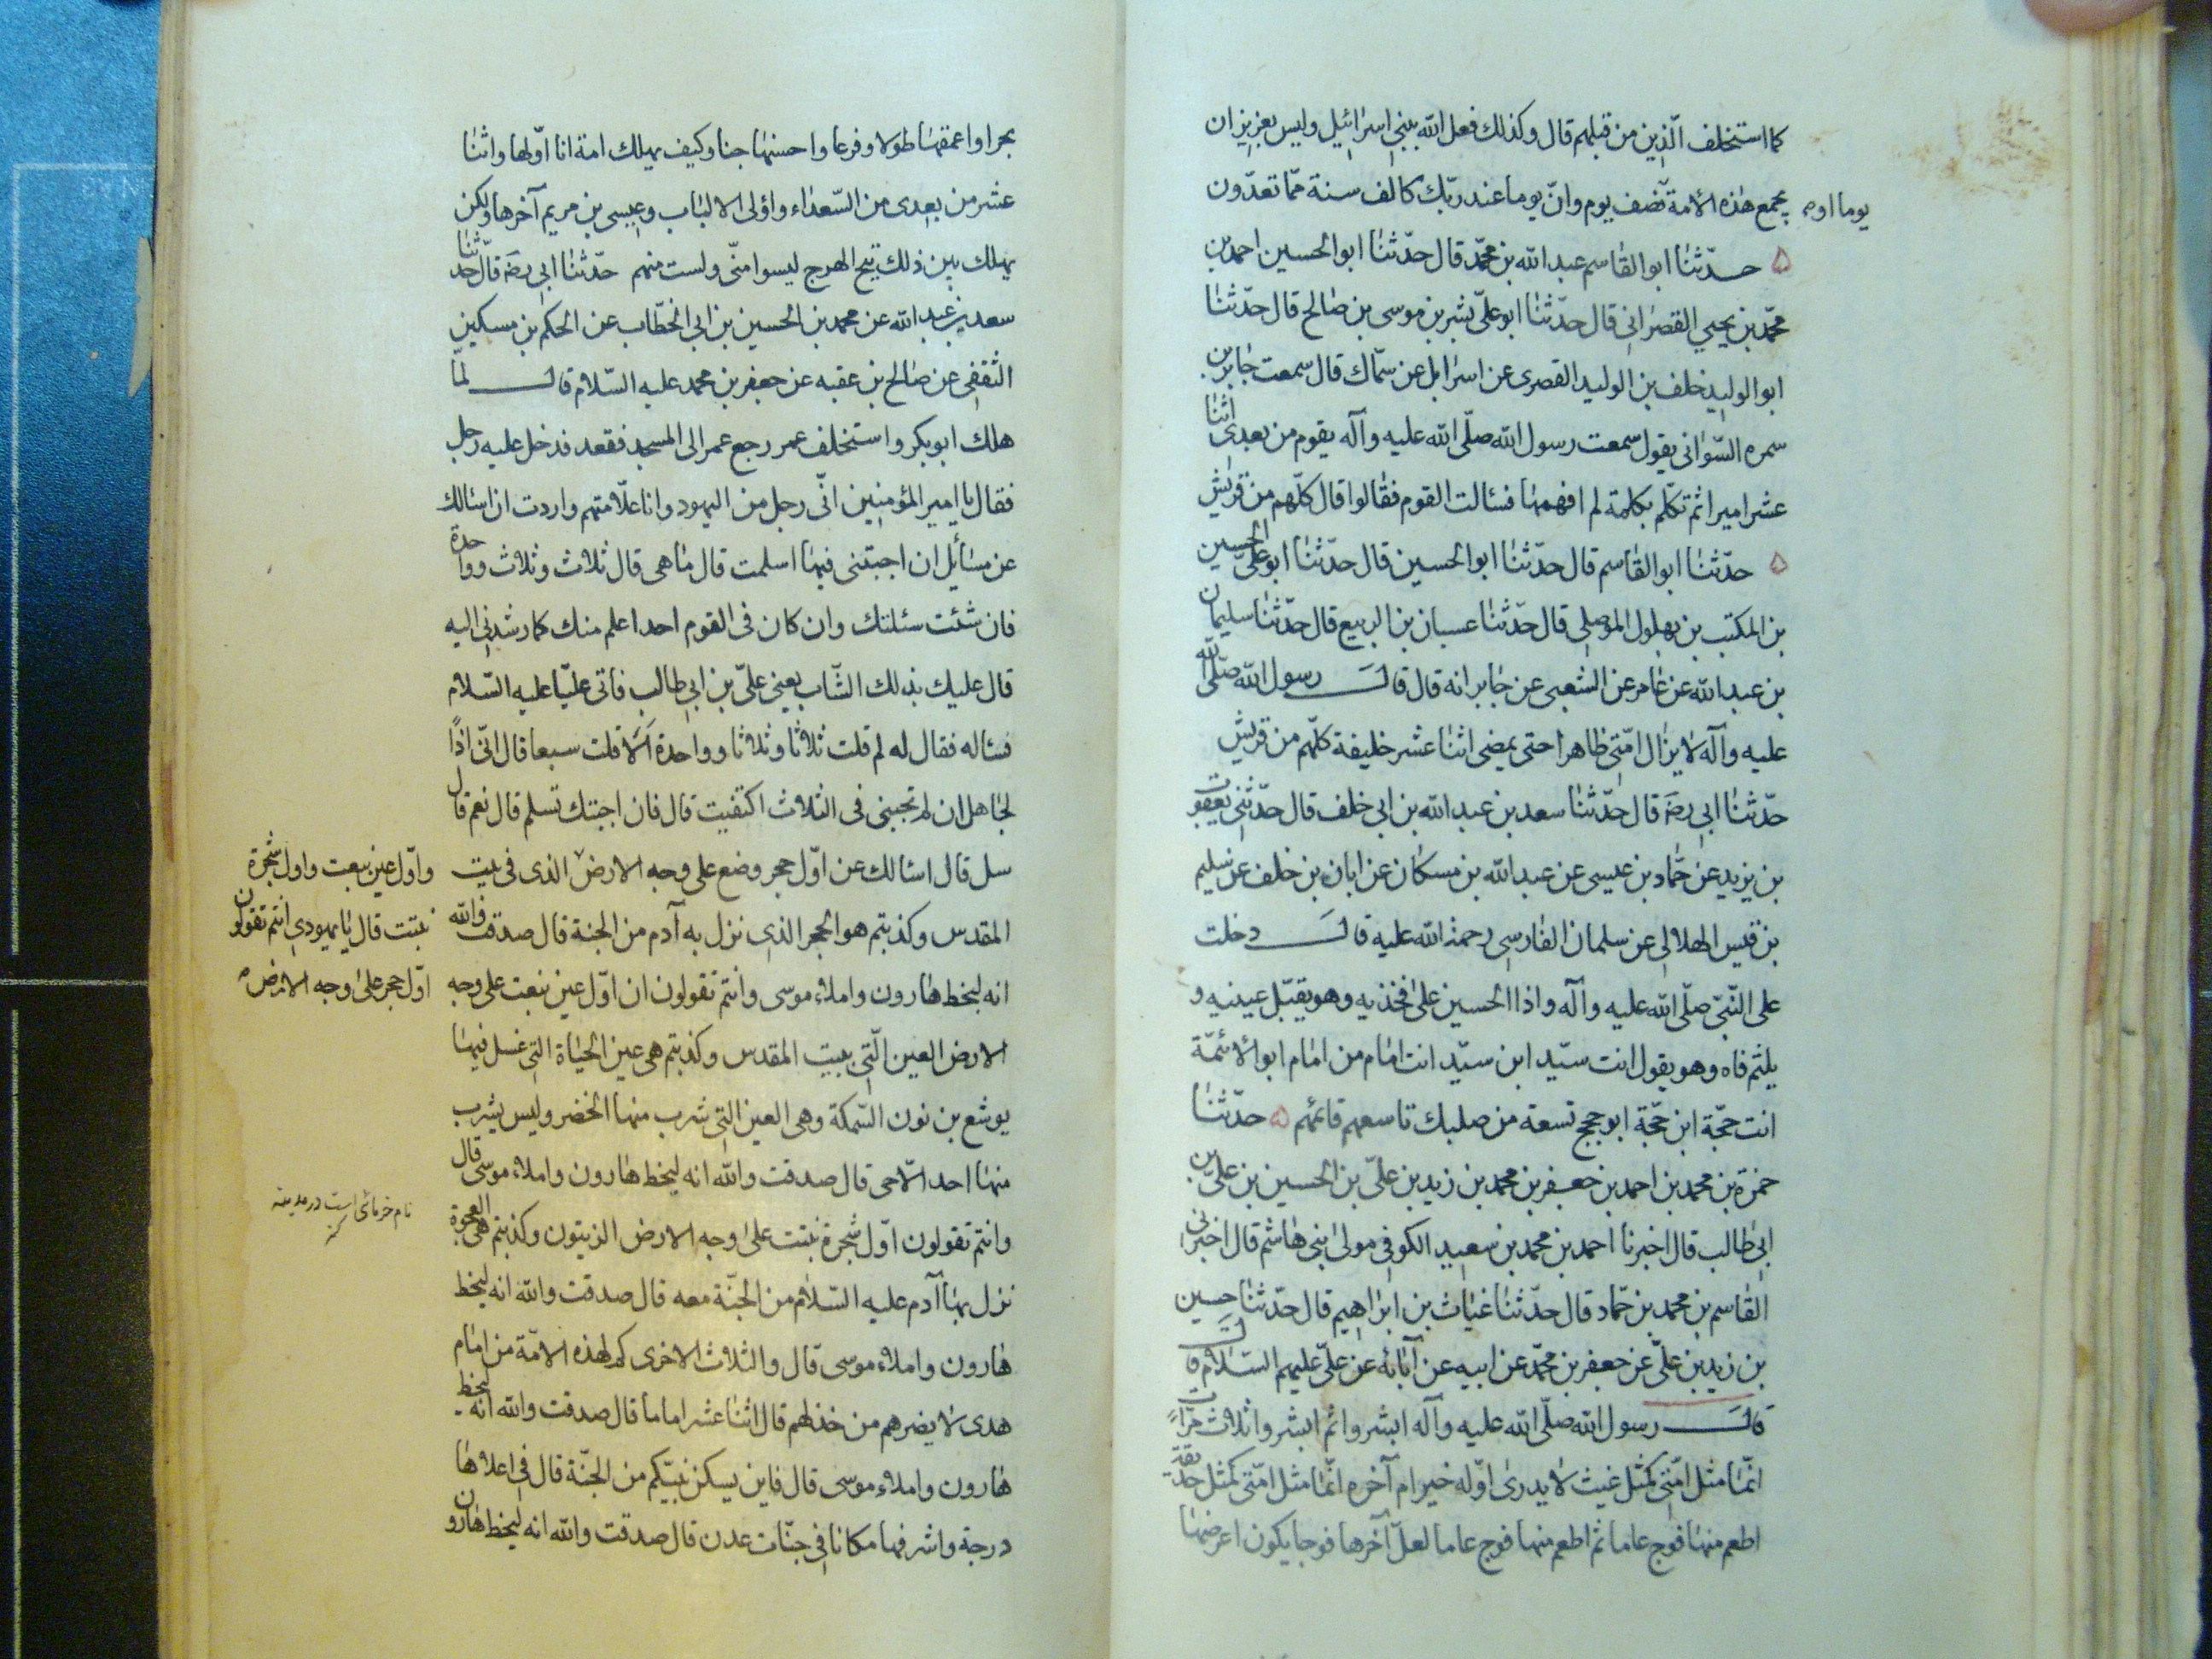 كما استخلف الّذين من قبلهم قال وكذلك فعل الله ببنى اسرائيل وليس بعزيز ان
يجمع هذه الامة نصف يوم وانّ يوما عند ربّك كالف سنة ممّا تعدّون
يوما او
حدّثنا ابو القاسم عبد الله بن محمّد قال حدّثنا ابو الحسين احمد بن
محمّد بن يحيى القصرانى قال حدّثنا ابو علىّ بشر بن موسى بن صالح قال حدّثنا
ابو الوليد خلف بن الوليد القصرى عن اسرائل عن سمّاك قال سمعت جابر بن
سمره السّوائى يقول سمعت رسول الله صلّى الله عليه وآله يقوم من بعدى اثنا
عشر اميرا ثم تكلّم بكلمة لم افهمها فسئالت القوم فقالوا قال كلّهم من قريش
حدّثنا ابو القاسم قال حدّثنا ابو الحسين قال حدّثنا ابو علىّ الحسين
بن المكتب بن بهلول الموصلى قال حدّثنا غسان بن الربيع قال حدّثنا سليمان
بن عبد الله عن عامر عن الشعبى عن جابر انه قال قال رسول الله صلّى الله
عليه وآله لا يزال امّتى ظاهرا حتى يمضى اثنا عشر خليفة كلّهم من قريش
حدّثنا ابى رضه قال حدّثنا سعد بن عبد الله بن ابى خلف قال حدّثنى يعقوب
بن يزيد عن حمّاد بن عيسى عن عبد الله بن مسكان عن ابان بن خلف عن سليم
بن قيس الهلالى عن سلمان الفارسى رحمة الله عليه قال دخلت
على النّبىّ صلّى الله عليه وآله واذا الحسين على فخذيه وهو يقبّل عينيه و
يلثم فاه وهو يقول انت سيّد ابن سيّد انت امام من امام ابو الائمّة
انت حجّة ابن حجّة ابو حجج تسعة من صلبك تاسعهم قائمهم حدّثنا
حمزة بن محمد بن احمد بن جعفر بن محمد بن زيد بن علىّ بن الحسين بن علىّ بن
ابى طالب قال اخبرنا احمد بن محمد بن سعيد الكوفى مولى بنى هاشم قال اخبرنى
القاسم بن محمد بن حمّاد قال حدّثنا غياث بن ابراهيم قال حدّثنا حسين
بن زيد بن علىّ عن جعفر بن محمّد عن ابيه عن آبائه عن علىّ عليهم السّلام قال
قال رسول الله صلّى الله عليه وآله ابشروا ثم ابشروا ثلاث مرّات
انّما مثل امّتى كمثل غيث لا يدرى اوّله خير ام آخره انّما مثل امّتى كمثل حديقة
اطعم منها فوج عاما ثم اطعم منها فوج عاما لعلّ آخرها فوجا يكون اعرضها
بحرا واعمقها طولا وفرعا واحسنها جنا وكيف يهلك امة انا اوّلها واثنا
عشر من بعدى من السّعداء واولى الالباب وعيسى بن مريم آخرها ولكن
يهلك بين ذلك نتج الهرج ليسوا منّى ولست منهم حدّثنا ابى رضه قال حدّثنا
سعد بن عبد الله عن محمد بن الحسين بن ابى الخطّاب عن الحكم بن مسكين
الثقفى عن صالح بن عقبه عن جعفر بن محمد عليه السّلام قال لمّا
هلك ابو بكر واستخلف عمر رجع عمر الى المسجد فقعد فدخل عليه رجل
فقال يا امير المؤمنين انّى رجل من اليهود وانا علّامتهم واردت ان اسئالك
عن مسائل ان اجبتنى فيها اسلمت قال ما هى قال ثلاث وثلاث وواحدة
فان شئت سئلتك وان كان فى القوم احد اعلم منك كما رشدنى اليه
قال عليك بذلك الشّاب يعنى علىّ بن ابى طالب فاتى عليّا عليه السّلام
فسئاله فقال له لم قلت ثلاثا وثلاثا وواحدة الا قلت سبعا قال انّى اذًا
لجاهل ان لم تجبنى فى الثلاث اكتفيت قال فان اجبتك تسلم قال نعم قال
سل قال اسئالك عن اوّل حجر وضع على وجه الارض الذى فى بيت
واوّل عين نبعت واول شجرة
نبتت قال يا يهودى انتم تقولون
اوّل حجر على وجه الارض
المقدس وكذبتم هو الحجر الذى نزل به آدم من الجنة قال صدقت والله
انه لبخط هارون واملاء موسى وانتم تقولون ان اوّل عين نبعت على وجه
الارض العين الّتى ببيت المقدس وكذبتم هى عين الحياة التى غسل فيها
يوشع بن نون السّمكة وهى العين التى شرب منها الخضر وليس يشرب
منها احد الّا حى قال صدقت والله انه لبخط هارون واملاء موسى قال
وانتم تقولون اوّل شجرة نبتت على وجه الارض الزيتون وكذبتم هى العجوة
نام خرمائى است در مدينه
نزل بها آدم عليه السّلام من الجنّة معه قال صدقت والله انه لبخط
هارون واملاء موسى قال والثلاث الاخرى كم لهذه الامّة من امام
هدى لا يضرهم من خذلهم قال اثنا عشر اماما قال صدقت والله انه لبخط
هارون واملاء موسى قال فاين يسكن نبيّكم من الجنّة قال فى اعلاها
درجة واشرفها مكانا فى جنّات عدن قال صدقت والله انه لبخط هارون